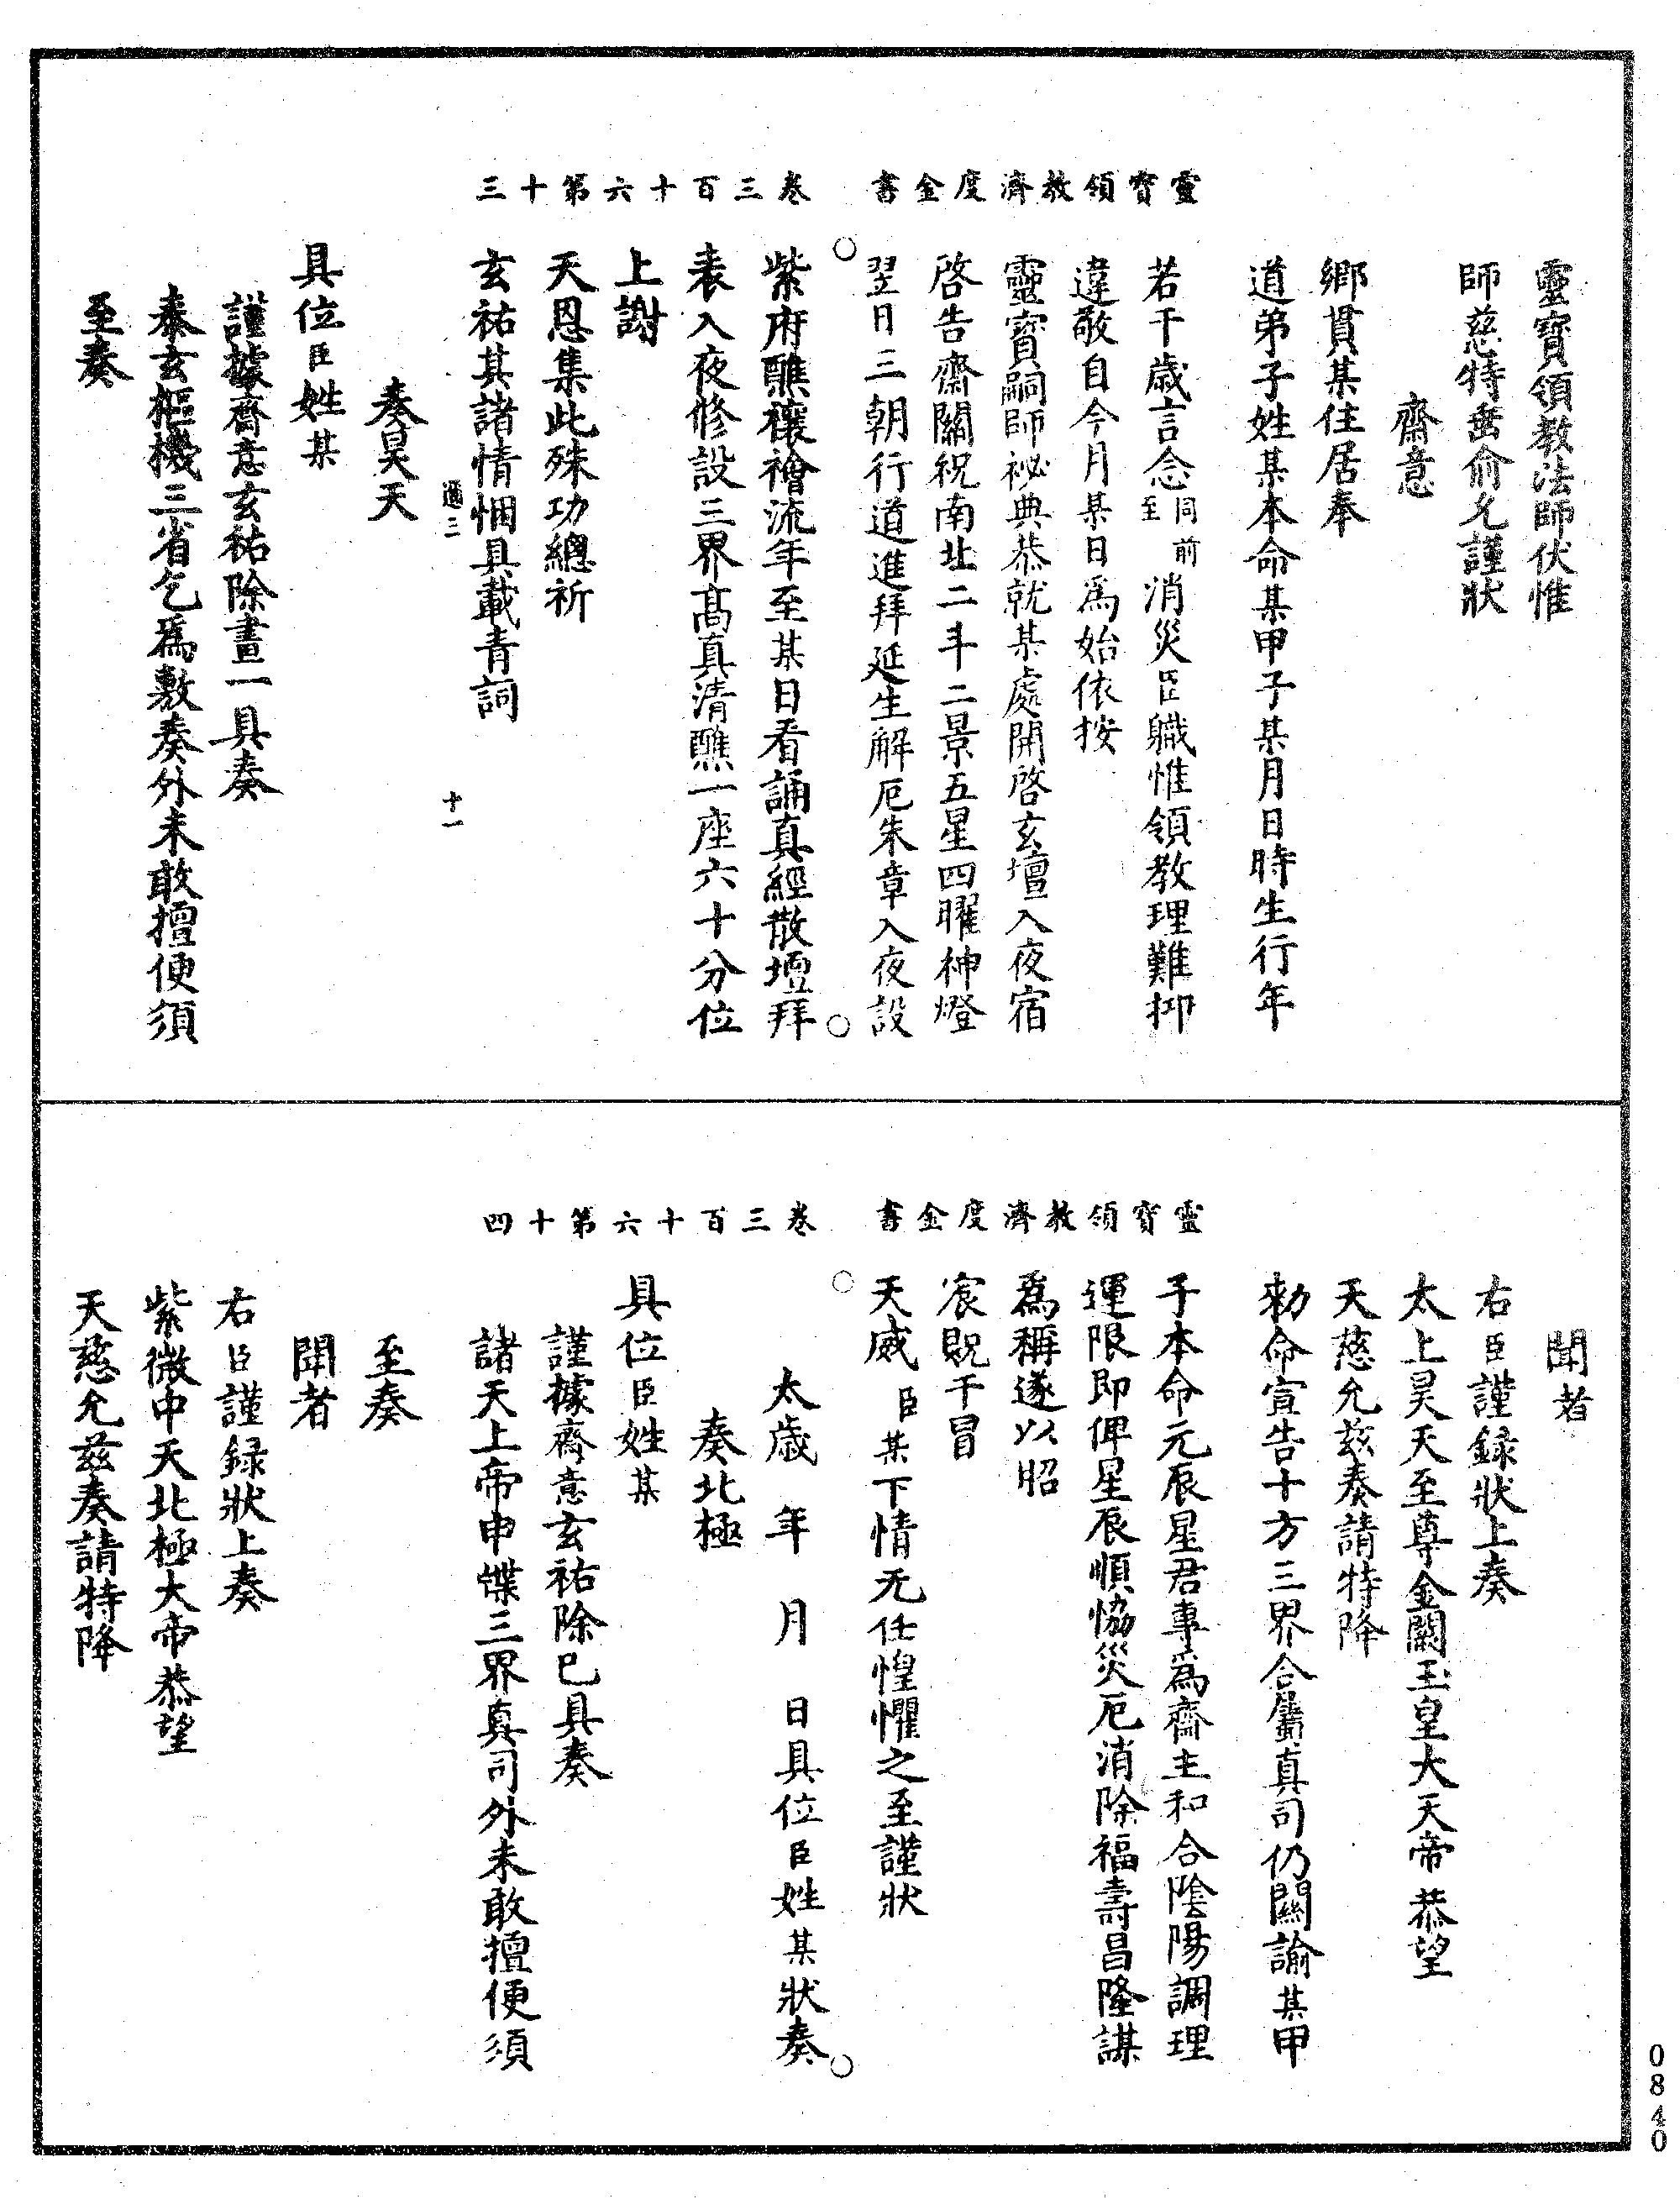 靈寶領教濟度金書　卷三百十六第十三
靈寶領教法師伏惟
師慈特垂俞允謹狀
齋意
鄉貫某住居奉
道弟子姓某本命某甲子某月日時生行年
若干歲言念同前至消災臣職惟領教理難抑
違敬自今月某日爲始依按
靈寶嗣師祕典恭就某處開啓玄壇入夜宿
啓告齋關祝南北二斗二景五星四曜神燈
翌日三朝行道進拜延生解厄朱章入夜設
紫府醮禳禬流年至某日看誦真經散壇拜
表入夜修設三界高真清醮一座六十分位
上謝
天恩集此殊功總祈
玄祐其諸情悃具載青詞
通三　十一
奏昊天
具位臣姓某
謹據齋意玄祐除畫一具奏
泰玄樞機三省乞爲敷奏外未敢擅便須
至奏
靈寶領教濟度金書　卷三百十六第十四
聞者
右臣謹錄狀上奏
太上昊天至尊金闕玉皇大天帝恭望
天慈允兹奏請特降
勑命宣告十方三界合屬真司仍關諭某甲
子本命元辰星君專爲齋主和合陰陽調理
運限即俾星辰順協災厄消除福壽昌隆謀
爲稱遂以昭
宸貺干冒
天威臣某下情无任惶懼之至謹狀
太歲　年　月　日具位臣姓某狀奏
奏北極
具位臣姓某
謹據齋意玄祐除已具奏
諸天上帝申牒三界真司外未敢擅便須
至奏
聞者
右臣謹録狀上奏
紫微中天北極大帝恭望
天慈允兹奏請特降
0840